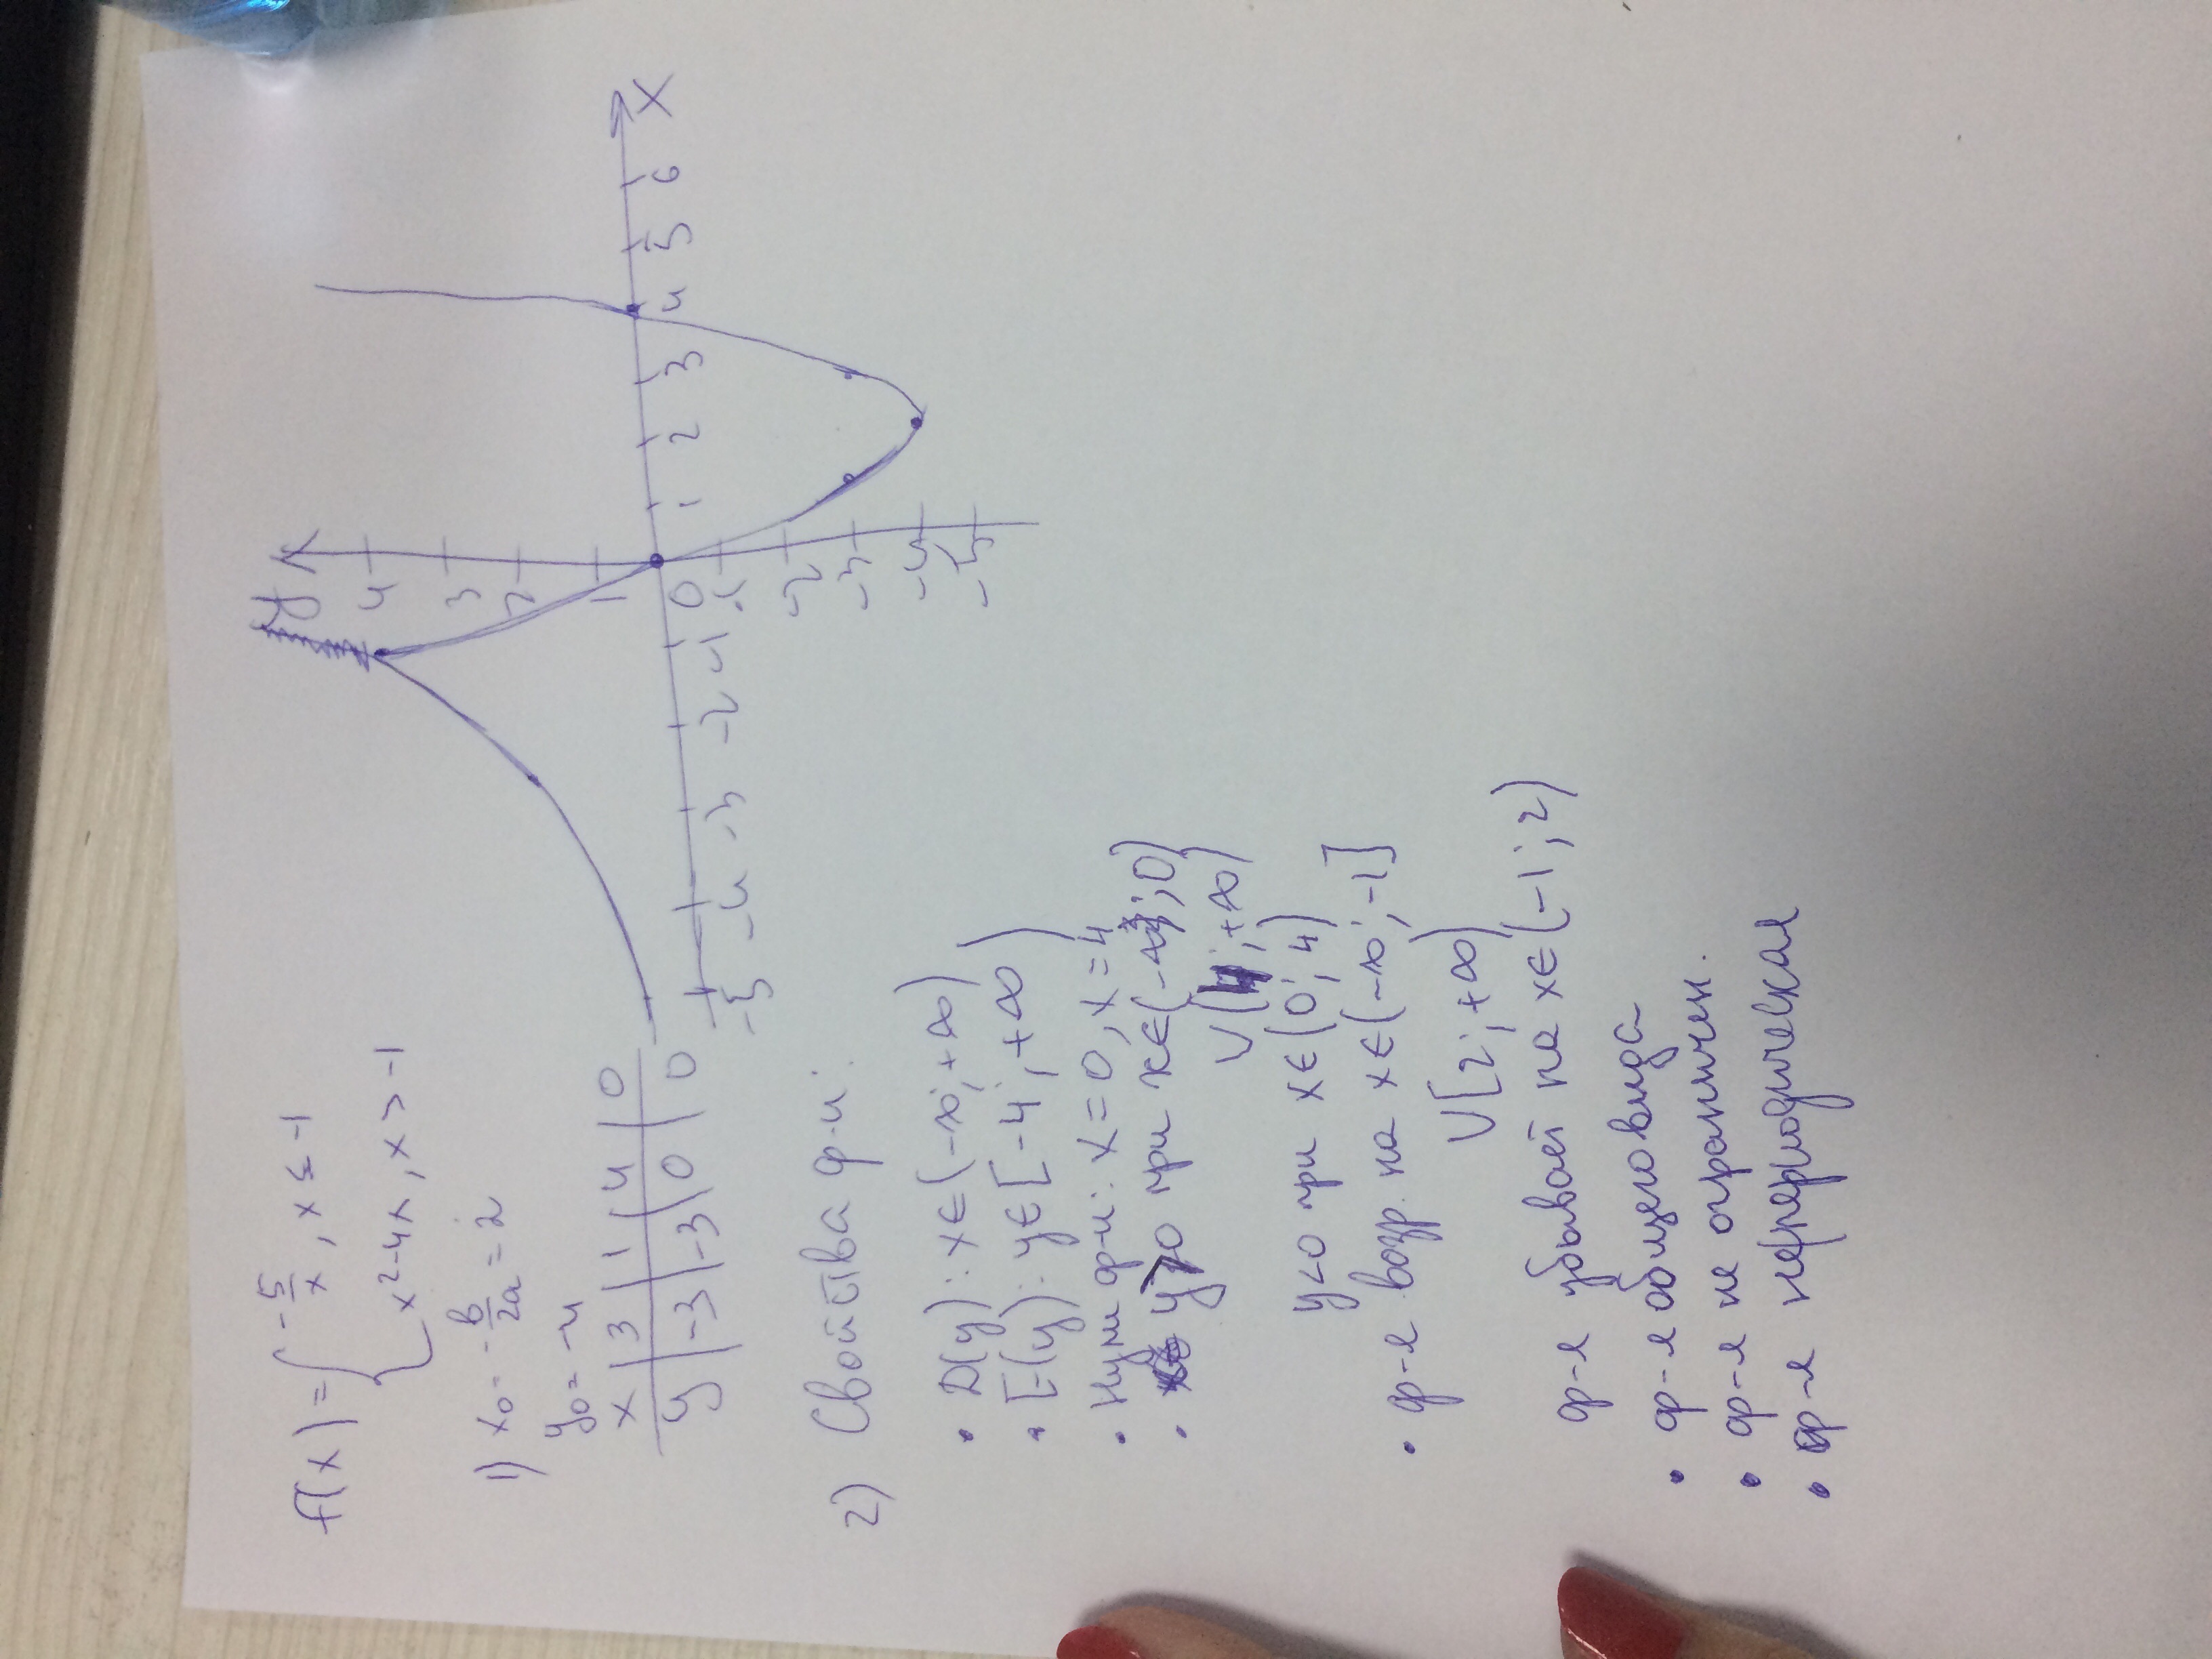 f(x) = { -5/x, x ≤ -1
x²-4x, x > -1
1) x₀ = -в/2a = 2
y₀ = -4
x | 3 | 1 | 4 | 0
y | -3 | -3 | 0 | 0
y
4
3
2
1
-5 -4 -3 -2 -1 0 1 2 3 4 5 6 X
-1
-2
-3
-4
-5
2) Свойства ф-и:
• D(y): x∈(-∞; +∞)
• E(y): y∈[-4; +∞)
• Нули ф-и: x=0, x=4
• y>0 при x∈(-∞; 0)
∪(4; +∞)
y<0 при x∈(0; 4)
• ф-я возр. на x∈(-∞; -1]
∪[2; +∞)
ф-я убывает на x∈(-1; 2)
• ф-я общего вида
• ф-я не ограничен.
• ф-я непериодическая